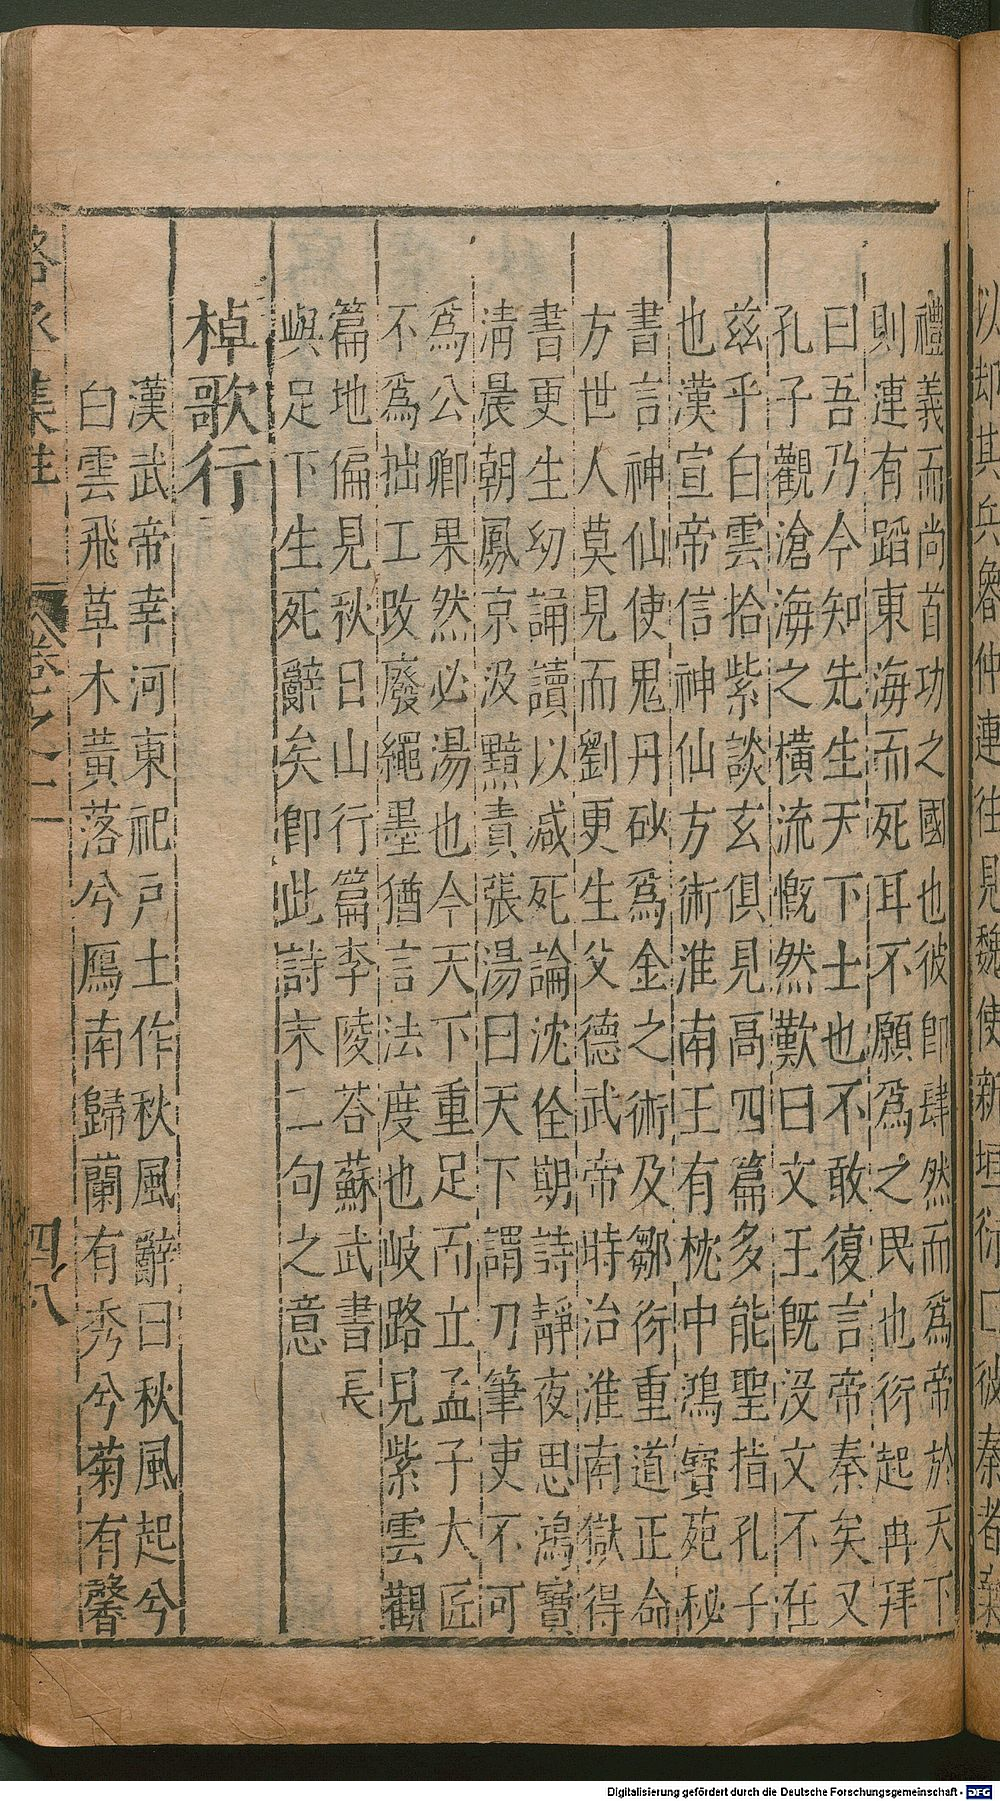 以却其兵魯仲連往見魏使新垣衍曰彼秦者棄
禮義而尚首功之國也彼卽肆然而爲帝於天下
則連有蹈東海而死耳不願爲之民也衍起冉拜
曰吾乃今知先生天下士也不敢復言帝秦矣又
孔子觀滄海之橫流慨然歎曰文王旣没文不在
兹乎白雲拾紫談玄俱見高四篇多能聖指孔子
也漢宣帝信神仙方術淮南王有枕中鴻寶苑秘
書言神仙使鬼丹砂爲金之術及鄒衍重道正命
方世人莫見而劉更生父德武帝時治淮南獄得
書更生幼誦讀以减死論沈佺期詩靜夜思鴻寶
清晨朝鳳京汲黯責張湯曰天下謂刀筆吏不可
爲公卿果然必湯也今天下重足而立孟子大匠
不爲拙工改廢繩墨猶言法度也岐路見紫雲觀
篇地偏見秋日山行篇李陵荅蘇武書長
與足下生死辭矣卽此詩末二句之意
棹歌行
漢武帝幸河東祀戸土作秋風辭曰秋風起兮
白雲飛草木黃落兮鴈南歸蘭有秀兮菊有馨
集註 卷之十一 四八
Digitalisierung gefördert durch die Deutsche Forschungsgemeinschaft - DFG